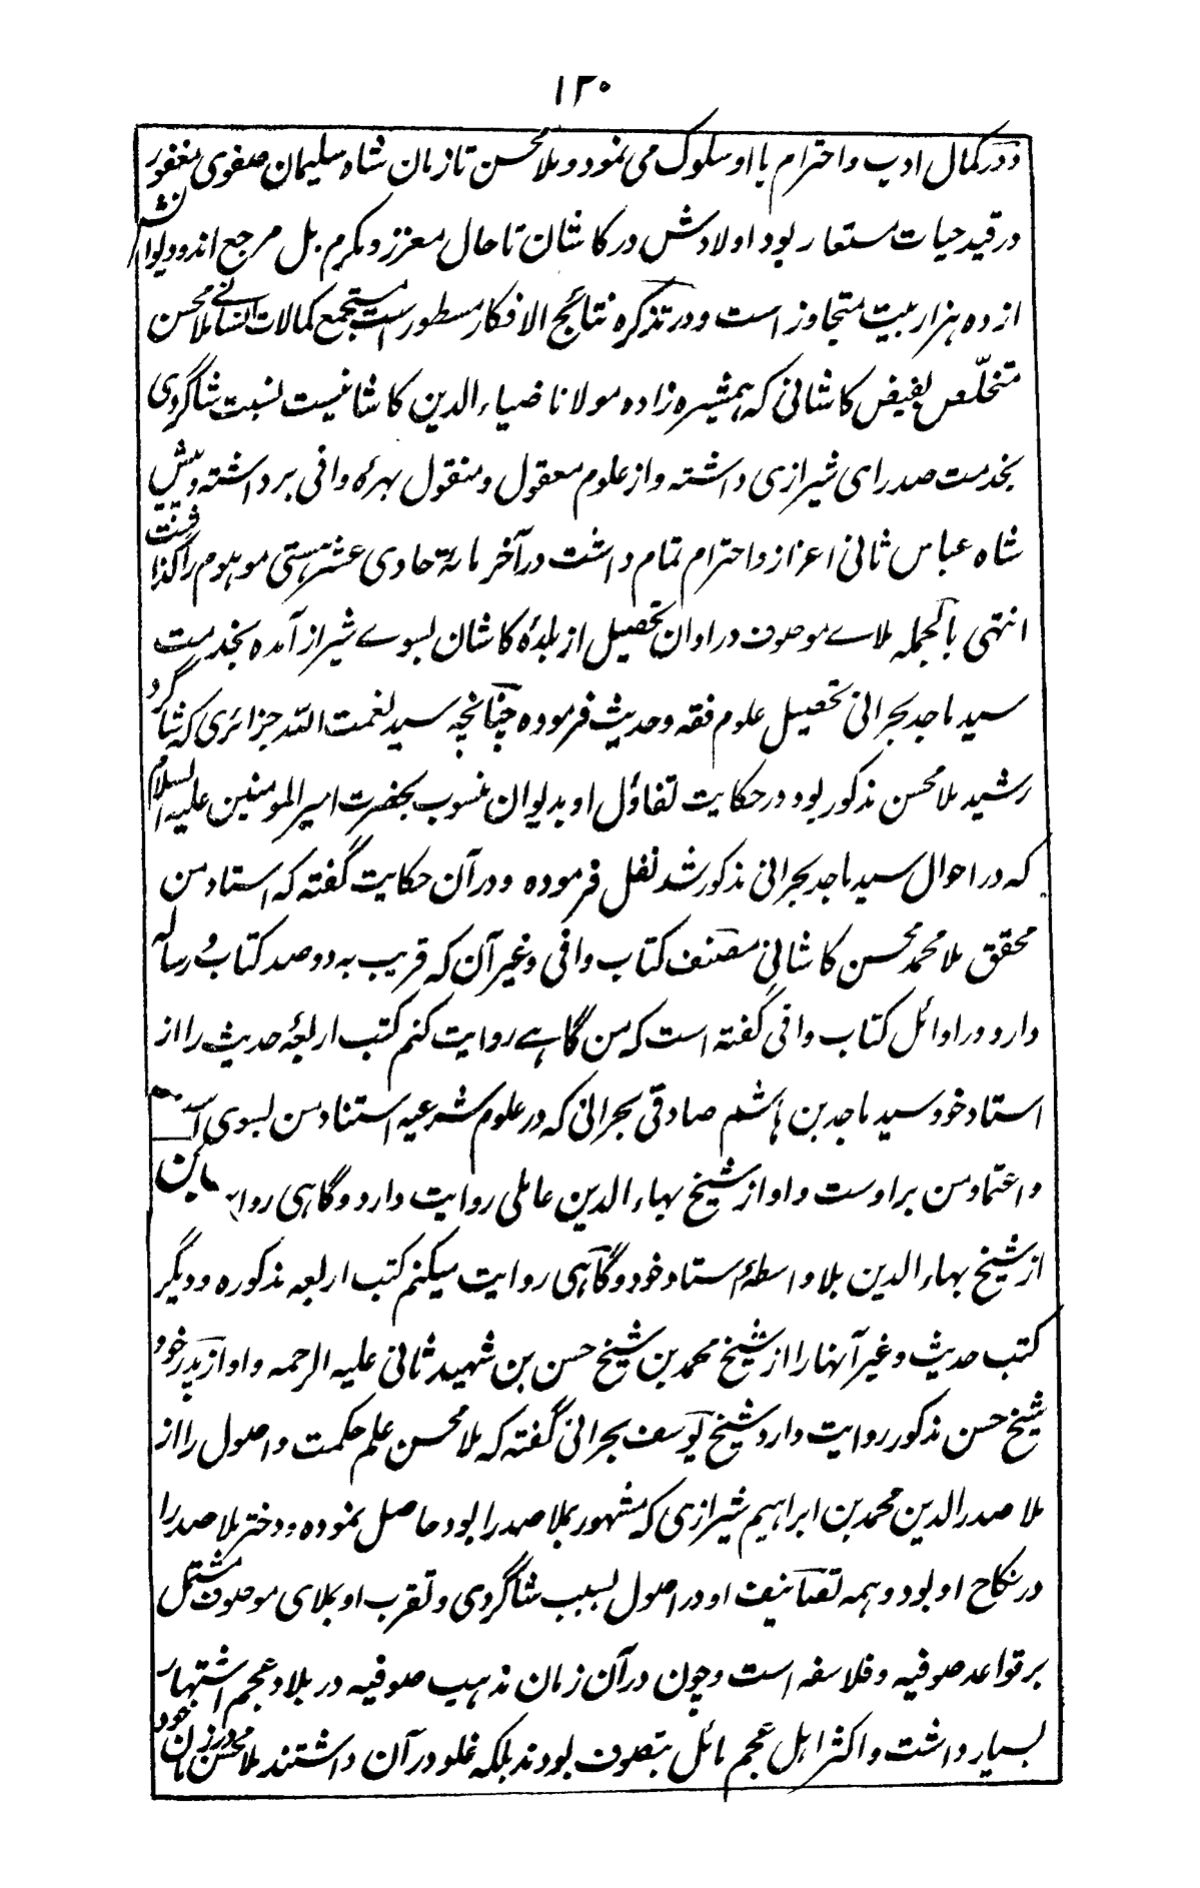 ۱۲۰
و درکمال ادب و احترام با او سلوک می نمود و ملا محسن تا زمان شاه سلیمان صفوی مغفور
در قید حیات مستعار بود اولادش در کاشان تا حال معزز و مکرم بل مرجع اند و دیوانش
از ده هزار بیت متجاوز است و در تذکره نتائج الافکار مسطور است مستجمع کمالات انسانے ملا محسن
متخلّص بفیض کاشانی که همشیره زاده مولانا ضیاء الدین کاشانیست نسبت شاگردی
بخدمت صدرای شیرازی داشته و از علوم معقول و منقول بهرهٔ وافی برداشته و پیش
شاه عباس ثانی اعزاز و احترام تمام داشت در آخر مائة حادی عشر هستی موهوم را گذاشت
انتهی بالجمله ملاے موصوف در اوان تحصیل از بلدهٔ کاشان بسوے شیراز آمده بخدمت
سید ماجد بحرانی تحصیل علوم فقه و حدیث فرموده چنانچه سید نعمت الله جزائری که شاگرد
رشید ملا محسن مذکور بود در حکایت تفاؤل او بدیوان منسوب بحضرت امیر المومنین علیه السلام
که در احوال سید ماجد بحرانی مذکور شد نقل فرموده و در آن حکایت گفته که استاد من
محقق ملا محمد محسن کاشانی مصنف کتاب وافی و غیر آن که قریب به دو صد کتاب و رساله
دارد در اوائل کتاب وافی گفته است که من گاهے روایت کنم کتب اربعهٔ حدیث را از
استاد خود سید ماجد بن هاشم صادقی بحرانی که در علوم شرعیه استناد من بسوی
و اعتماد من بر اوست و او از شیخ بهاء الدین عاملی روایت دارد و گاهی
از شیخ بهاء الدین بلا واسطهٔ استاد خود و گاهی روایت میکنم کتب اربعه مذکوره و دیگر
کتب حدیث و غیر آنها را از شیخ محمد بن شیخ حسن بن شهید ثانی علیه الرحمه و او از پدر خود
شیخ حسن مذکور روایت دارد شیخ یوسف بحرانی گفته که ملا محسن علم حکمت و اصول را از
ملا صدر الدین محمد بن ابراهیم شیرازی که مشهور بملا صدرا بود حاصل نموده و دختر ملا صدرا
در نکاح او بود و همه تصانیف او در اصول بسبب شاگردی و تقرب او بملای موصوف مشتمل
بر قواعد صوفیه و فلاسفه است و چون در آن زمان مذهب صوفیه در بلاد عجم اشتهار
بسیار داشت و اکثر اهل عجم مائل بتصوف بودند بلکه غلو در آن داشتند ملا محسن در زمان خود